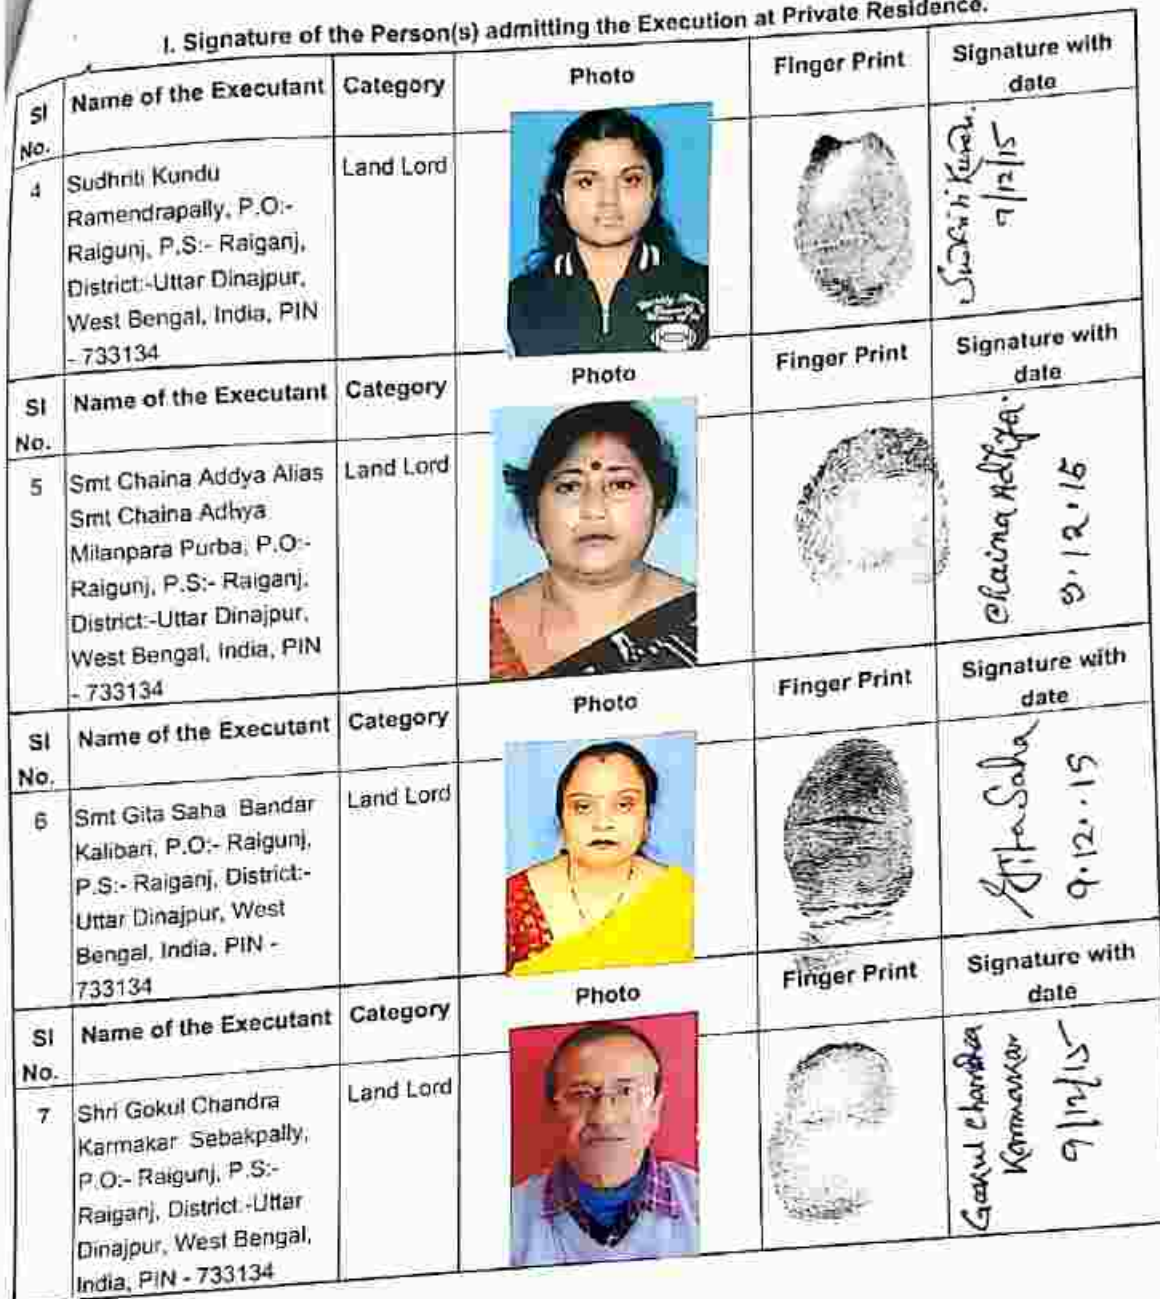 I. Signature of the Person(s) admitting the Execution at Private Residence.
Sl No. Name of the Executant Category Photo Finger Print Signature with date
4 Sudhriti Kundu Land Lord
Ramendrapally, P.O:-
Raigunj, P.S:- Raiganj,
District:-Uttar Dinajpur,
West Bengal, India, PIN
- 733134
Kundu.
9/12/15
Sl No. Name of the Executant Category Photo Finger Print Signature with date
5 Smt Chaina Addya Alias Land Lord
Smt Chaina Adhya
Milanpara Purba, P.O:-
Raigunj, P.S:- Raiganj,
District:-Uttar Dinajpur,
West Bengal, India, PIN
- 733134
Chaina Adhya.
9.12.15
Sl No. Name of the Executant Category Photo Finger Print Signature with date
6 Smt Gita Saha Bandar Land Lord
Kalibari, P.O:- Raigunj,
P.S:- Raiganj, District:-
Uttar Dinajpur, West
Bengal, India, PIN -
733134
Gita Saha
9.12.15
Sl No. Name of the Executant Category Photo Finger Print Signature with date
7 Shri Gokul Chandra Land Lord
Karmakar Sebakpally,
P.O:- Raigunj, P.S:-
Raiganj, District:-Uttar
Dinajpur, West Bengal,
India, PIN - 733134
Gokul Chandra
Karmakar
9/12/15